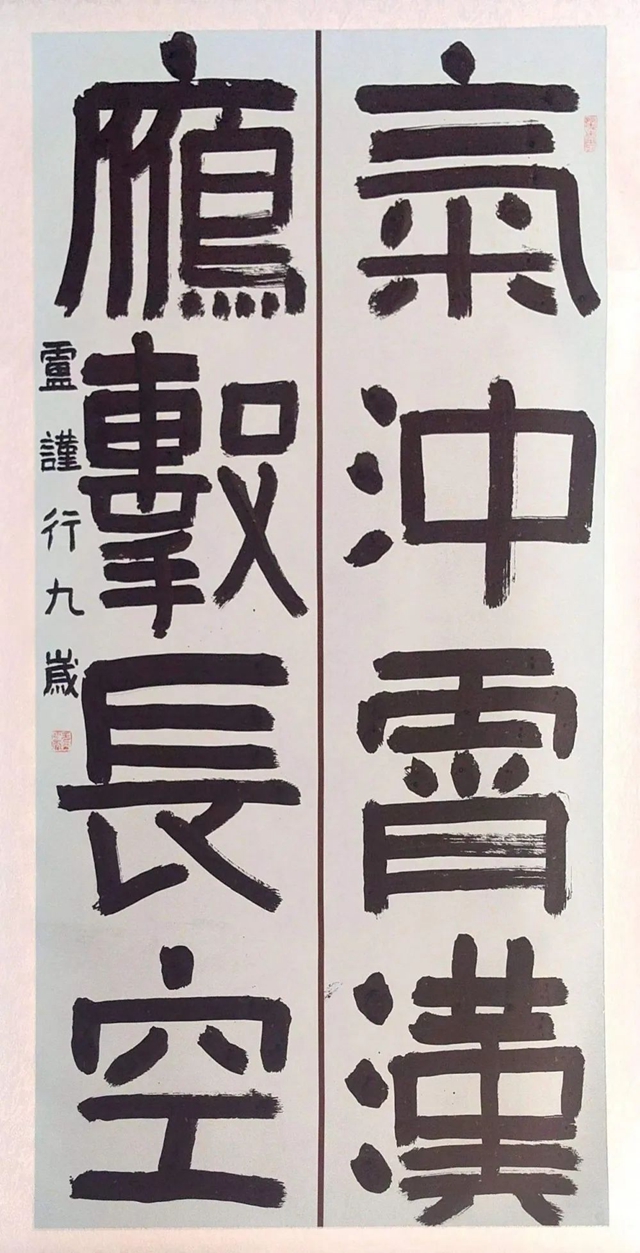 氣沖霄漢
鷹擊長空
盧謹行九歲